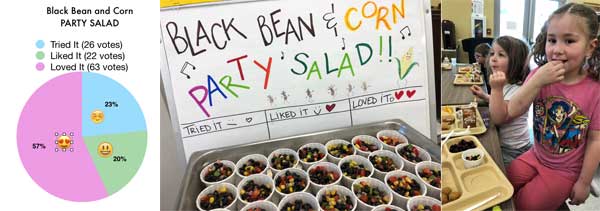 Black Bean and Corn
PARTY SALAD
Tried It (26 votes)
Liked It (22 votes)
Loved It (63 votes)
23%
57%
20%
BLACK BEAN & CORN
PARTY SALAD!!
TRIED IT
LIKED IT
LOVED IT